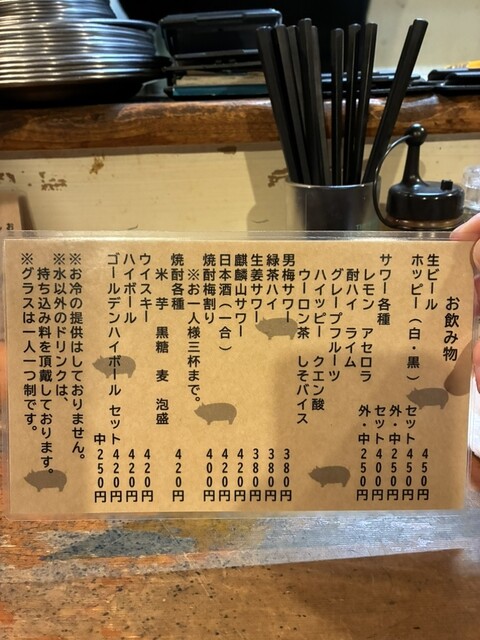 お飲み物
生ビール 450円
ホッピー（白・黒） セット450円
外・中250円
サワー各種 セット400円
レモン アセロラ 外・中250円
酎ハイ ライム
グレープフルーツ
ハイッピー クエン酸
ウーロン茶 しそバイス
男梅サワー 380円
緑茶ハイ 380円
生姜サワー 380円
麒麟山サワー 420円
日本酒（一合） 420円
焼酎梅割り 400円
※お一人様三杯まで。
焼酎各種 420円
米 芋 黒糖 麦 泡盛
ウイスキー 420円
ハイボール 420円
ゴールデンハイボール セット420円
中250円
※お冷の提供はしておりません。
※水以外のドリンクは、
持ち込み料を頂戴しております。
※グラスは一人一つ制です。